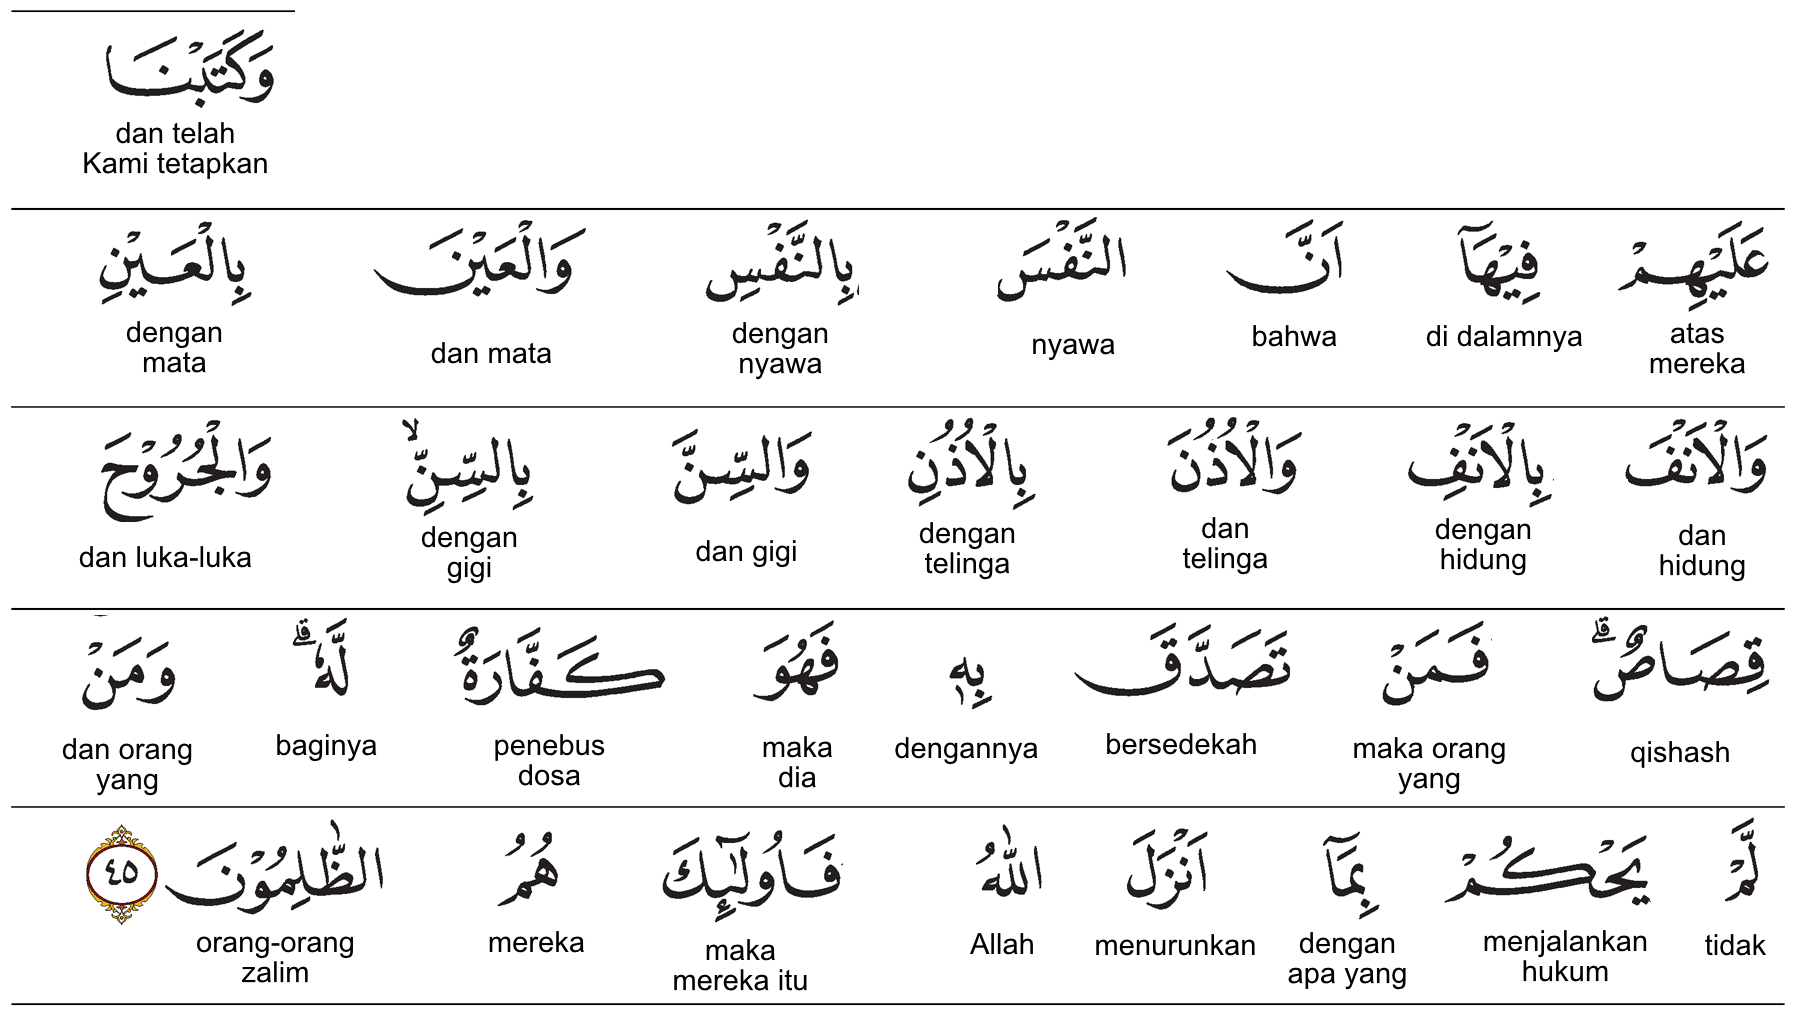 وَكَتَبْنَا
dan telah
Kami tetapkan
عَلَيْهِمْ فِيْهَآ اَنَّ النَّفْسَ بِالنَّفْسِ وَالْعَيْنَ بِالْعَيْنِ
atas mereka di dalamnya bahwa nyawa dengan nyawa dan mata dengan mata
وَالْاَنْفَ بِالْاَنْفِ وَالْاُذُنَ بِالْاُذُنِ وَالسِّنَّ بِالسِّنِّۙ وَالْجُرُوْحَ
dan hidung dengan hidung dan telinga dengan telinga dan gigi dengan gigi dan luka-luka
قِصَاصٌۗ فَمَنْ تَصَدَّقَ بِهٖ فَهُوَ كَفَّارَةٌ لَّهٗۗ وَمَنْ
qishash maka orang yang bersedekah dengannya maka dia penebus dosa baginya dan orang yang
لَّمْ يَحْكُمْ بِمَآ اَنْزَلَ اللّٰهُ فَاُولٰۤىِٕكَ هُمُ الظّٰلِمُوْنَ ٤٥
tidak menjalankan hukum dengan apa yang menurunkan Allah maka mereka itu mereka orang-orang zalim